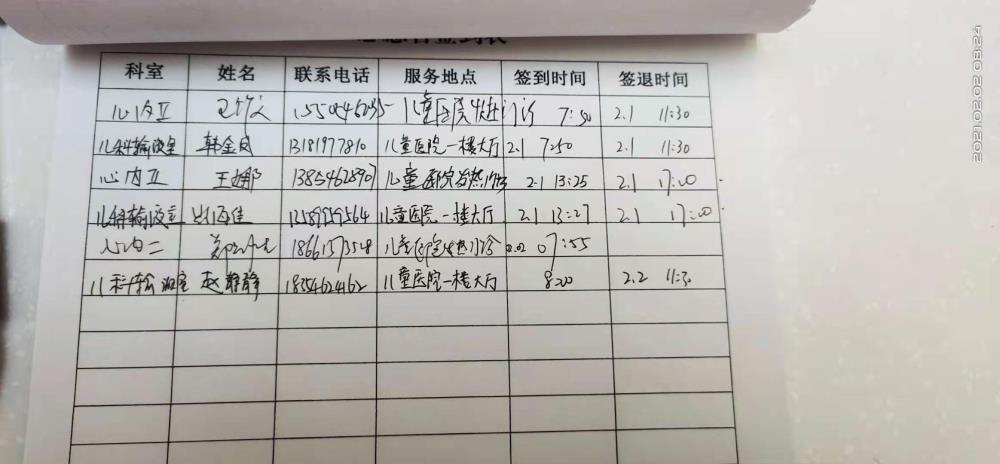 签到表
科室 姓名 联系电话 服务地点 签到时间 签退时间
心内II 儿童医院 门诊 7:50 2.1 11:30
儿科输液室 韩金凤 13181977810 儿童医院一楼大厅 2.1 7:50 2.1 11:30
心内II 王娜 13854628907 儿童医院发热门诊 2.1 13:25 2.1 17:00
儿科输液室 13589959564 儿童医院一楼大厅 2.1 13:27 2.1 17:00
心内二 18661573548 儿童医院发热门诊 2.02 07:55
儿科输液室 赵静静 18354624162 儿童医院一楼大厅 8:20 2.2 11:30
2021.02.02 08:24